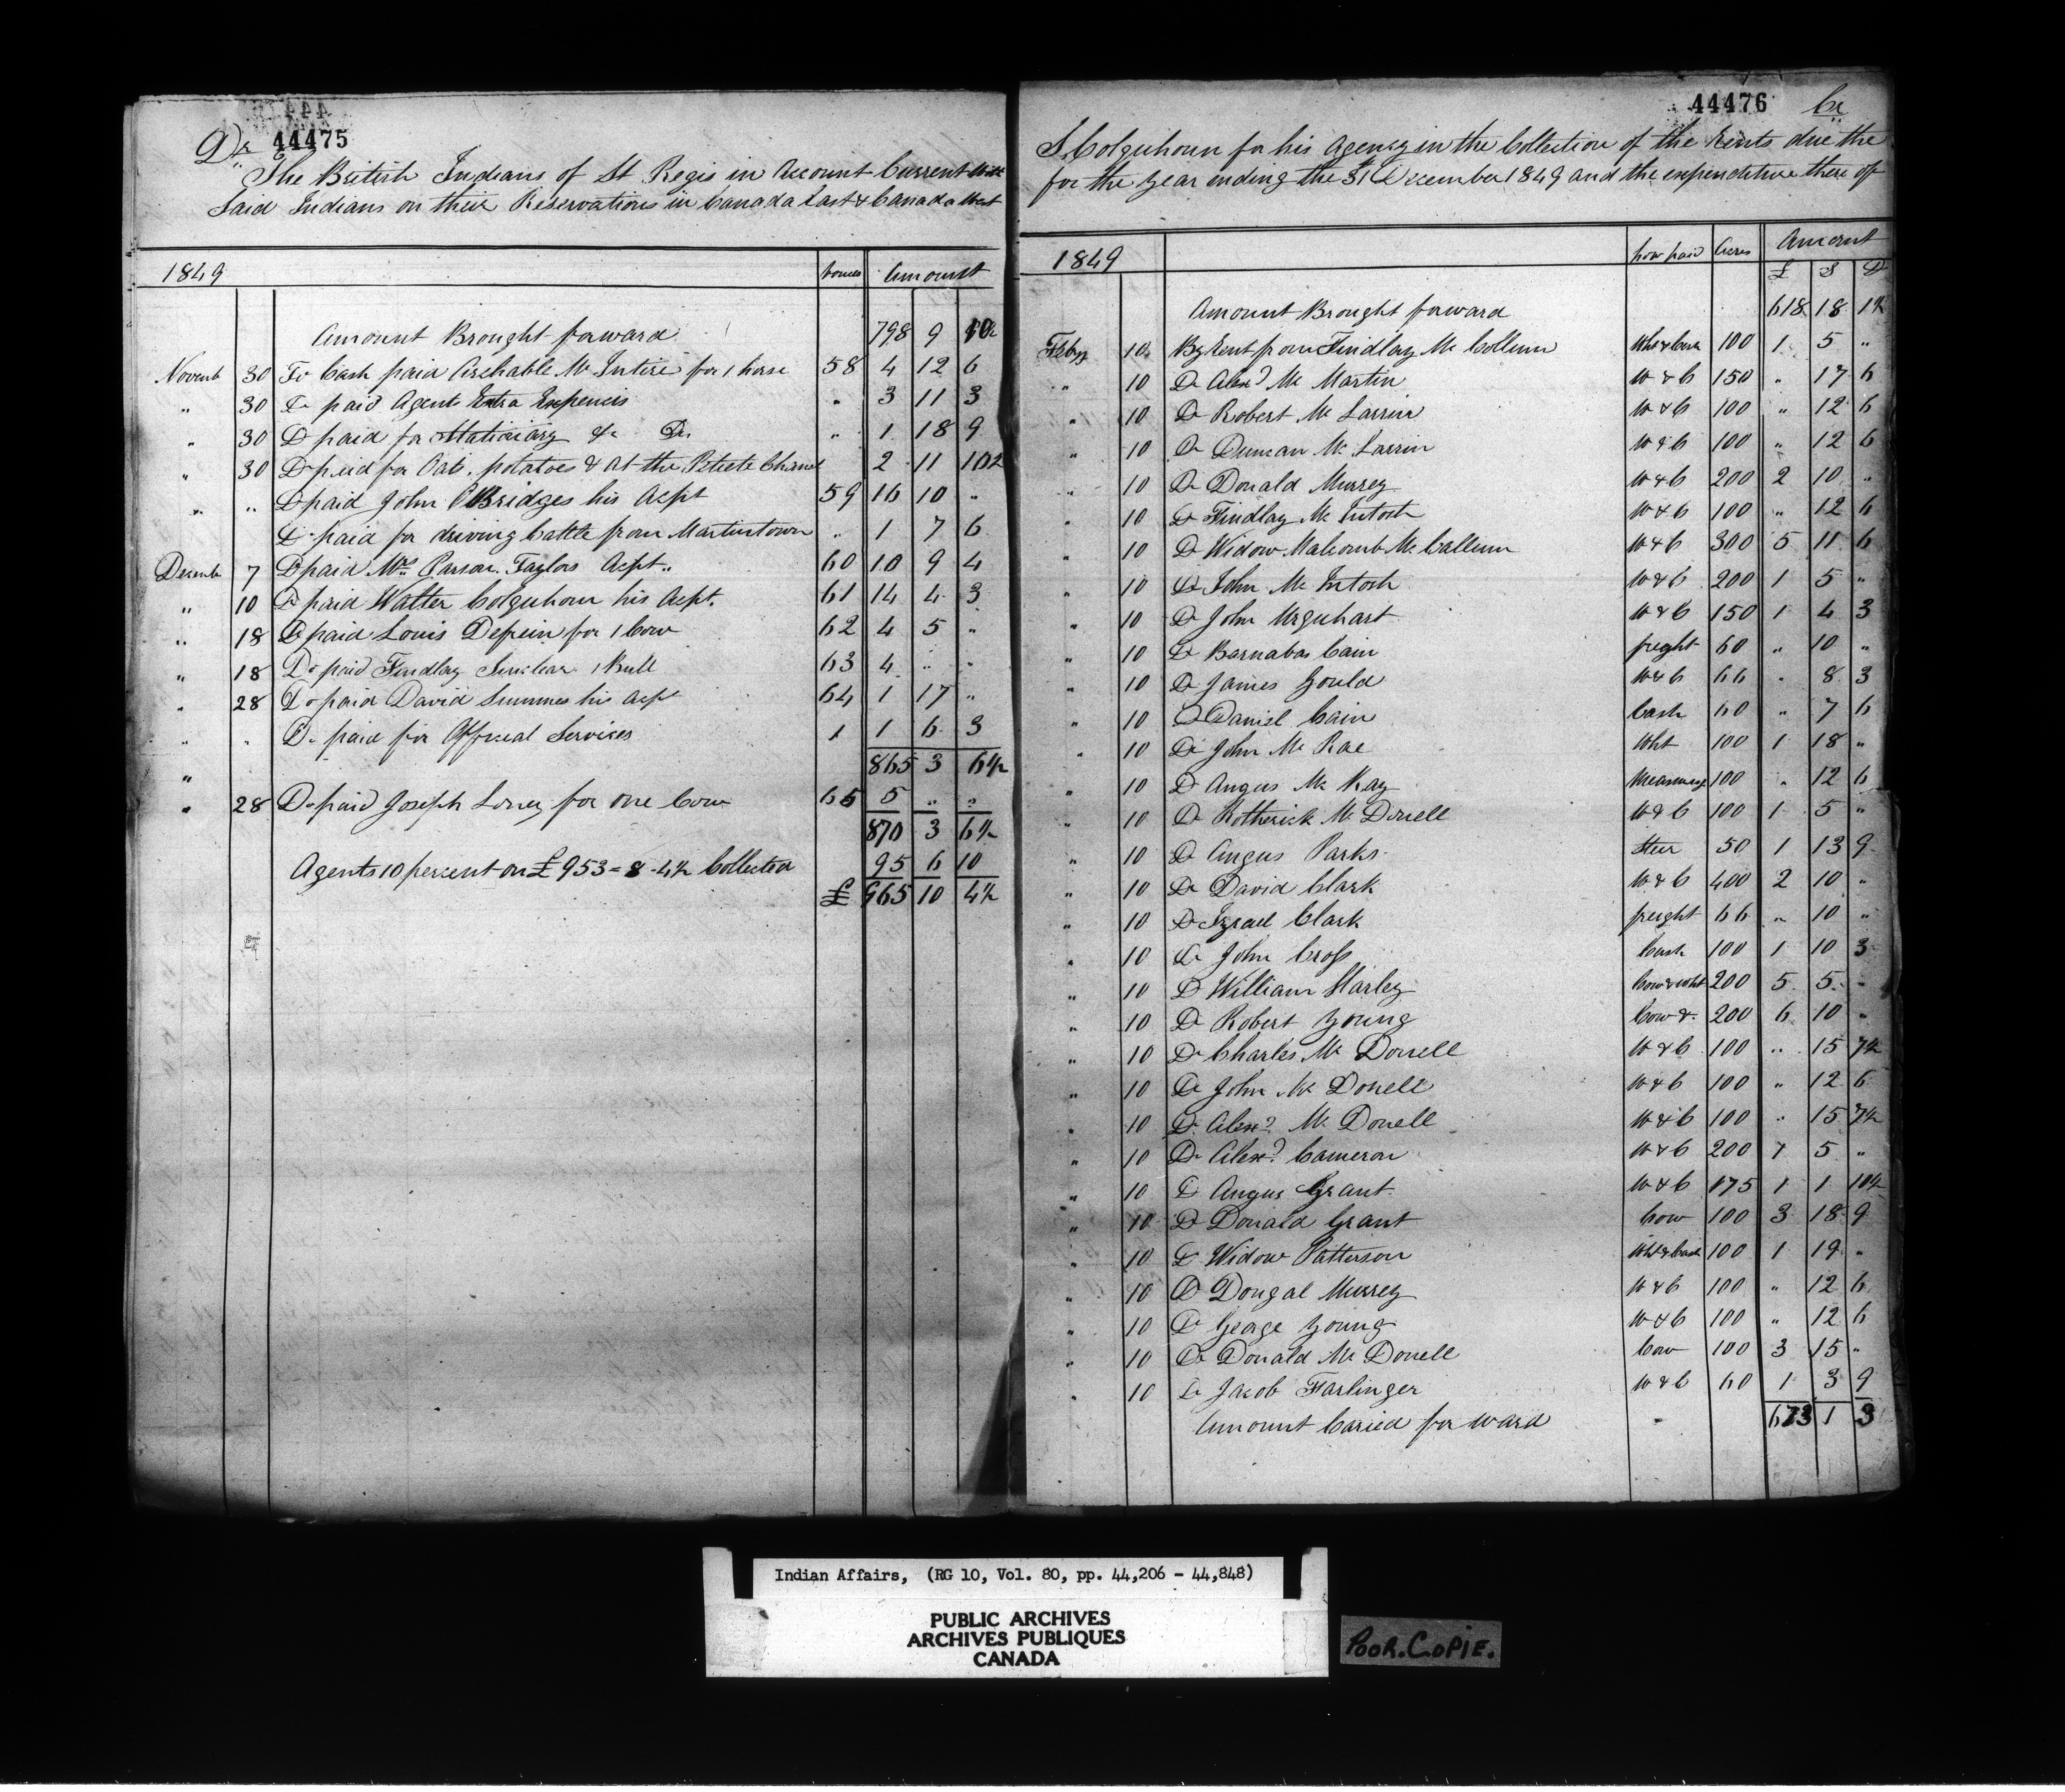 44475
Dr
The British Indians of St Regis in Account Current with
Said Indians on their Reservations in Canada East & Canada West
1849 Amount
Amount Brought forward 798 9 10½
Novemb 30 To Cash paid Archable Mc Intire for 1 horse 58 4 12 6
" 30 Do paid Agents Extra Expences " 3 11 3
" 30 Do paid for Stationary &c Do " 1 18 9
" 30 Do paid for Oats, potatoes & at the 2 11 10½
" " Do paid John Bridges his Acpt 59 16 10 "
Do paid for driving Cattle from Martintown " 1 7 6
Decemb 7 Do paid Taylors Acpt " 60 10 9 4
" 10 Do paid Walter Colquhoun his Acpt. 61 14 4 3
" 18 Do paid Louis for 1 Cow 62 4 5 "
" 18 Do paid Findlay 1 Bull 63 4 " "
" 28 Do paid David Summes his Acpt 64 1 17 "
" " Do paid for Official Services 1 1 6 3
865 3 6½
" 28 Do paid Joseph Loney for one Cow 65 5 " "
870 3 6½
Agents 10 percent on £953=8-4½ Collected 95 6 10
£ 965 10 4½
44476 Cr
S. Colquhoun for his Agency in the Collection of the Rents due the
for the year ending the 31 December 1849 and the expenditure there of
1849 how paid Acres Amount
£ S D
Amount Brought forward 618 18 1½
Feby 10 By Rent from Findlay Mc Collum Wht & Cash 100 1 5 "
" 10 Do Alexd Mc Martin W & C 150 " 17 6
" 10 Do Robert Mc Larrin W & C 100 " 12 6
" 10 Do Duncan Mc Larrin W & C 100 " 12 6
" 10 Do Donald Murrey W & C 200 2 10 "
" 10 Do Findlay Mc Intosh W & C 100 " 12 6
" 10 Do Widow Malcomb Mc Callum W & C 300 5 11 6
" 10 Do John Mc Intosh W & C 200 1 5 "
" 10 Do John Urquhart W & C 150 1 4 3
" 10 Do Barnabas Cain freght 60 " 10 "
" 10 Do James Gould W & C 66 " 8 3
" 10 Do Daniel Cain Cash 60 " 7 6
" 10 Do John Mc Rae Wht 100 1 18 "
" 10 Do Angus Mc Kay 100 " 12 6
" 10 Do Rotherick Mc Donell W & C 100 1 5 "
" 10 Do Angus Parks Steer 50 1 13 9
" 10 Do David Clark W & C 400 2 10 "
" 10 Do Izrael Clark freght 66 " 10 "
" 10 Do John Cross Cash 100 1 10 3
" 10 Do William Starley Cow & Wht 200 5 5 "
" 10 Do Robert Young Cow & 200 6 10 "
" 10 Do Charles Mc Donell W & C 100 " 15 7½
" 10 Do John Mc Donell W & C 100 " 12 6
" 10 Do Alexd Mc Donell W & C 100 " 15 7½
" 10 Do Alexd Cameron W & C 200 1 5 "
" 10 Do Angus Grant W & C 175 1 1 10½
" 10 Do Donald Grant Cow 100 3 18 9
" 10 Do Widow Patterson Wht & Cash 100 1 19 "
" 10 Do Dougal Murrey W & C 100 " 12 6
" 10 Do George Young W & C 100 " 12 6
" 10 Do Donald Mc Donell Cow 100 3 15 "
" 10 Do Jacob Farlinger W & C 60 1 3 9
Amount Caried for ward 673 1 3
Indian Affairs, (RG 10, Vol. 80, pp. 44,206 - 44,848)
PUBLIC ARCHIVES
ARCHIVES PUBLIQUES
CANADA
POOR.COPIE.